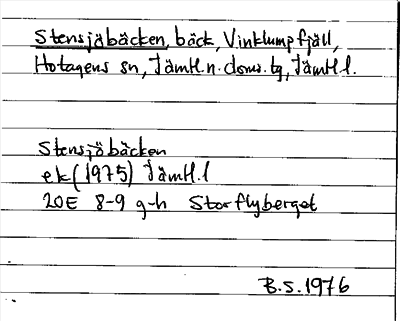 Stensjöbäcken, bäck, Vinklumpfjäll,
Hotagens sn, Jämtl. n. doms. tg, Jämtl l.
Stensjöbäcken
ek (1975) Jämtl. l
20E 8-9 g-h Storflyberget
B.S. 1976